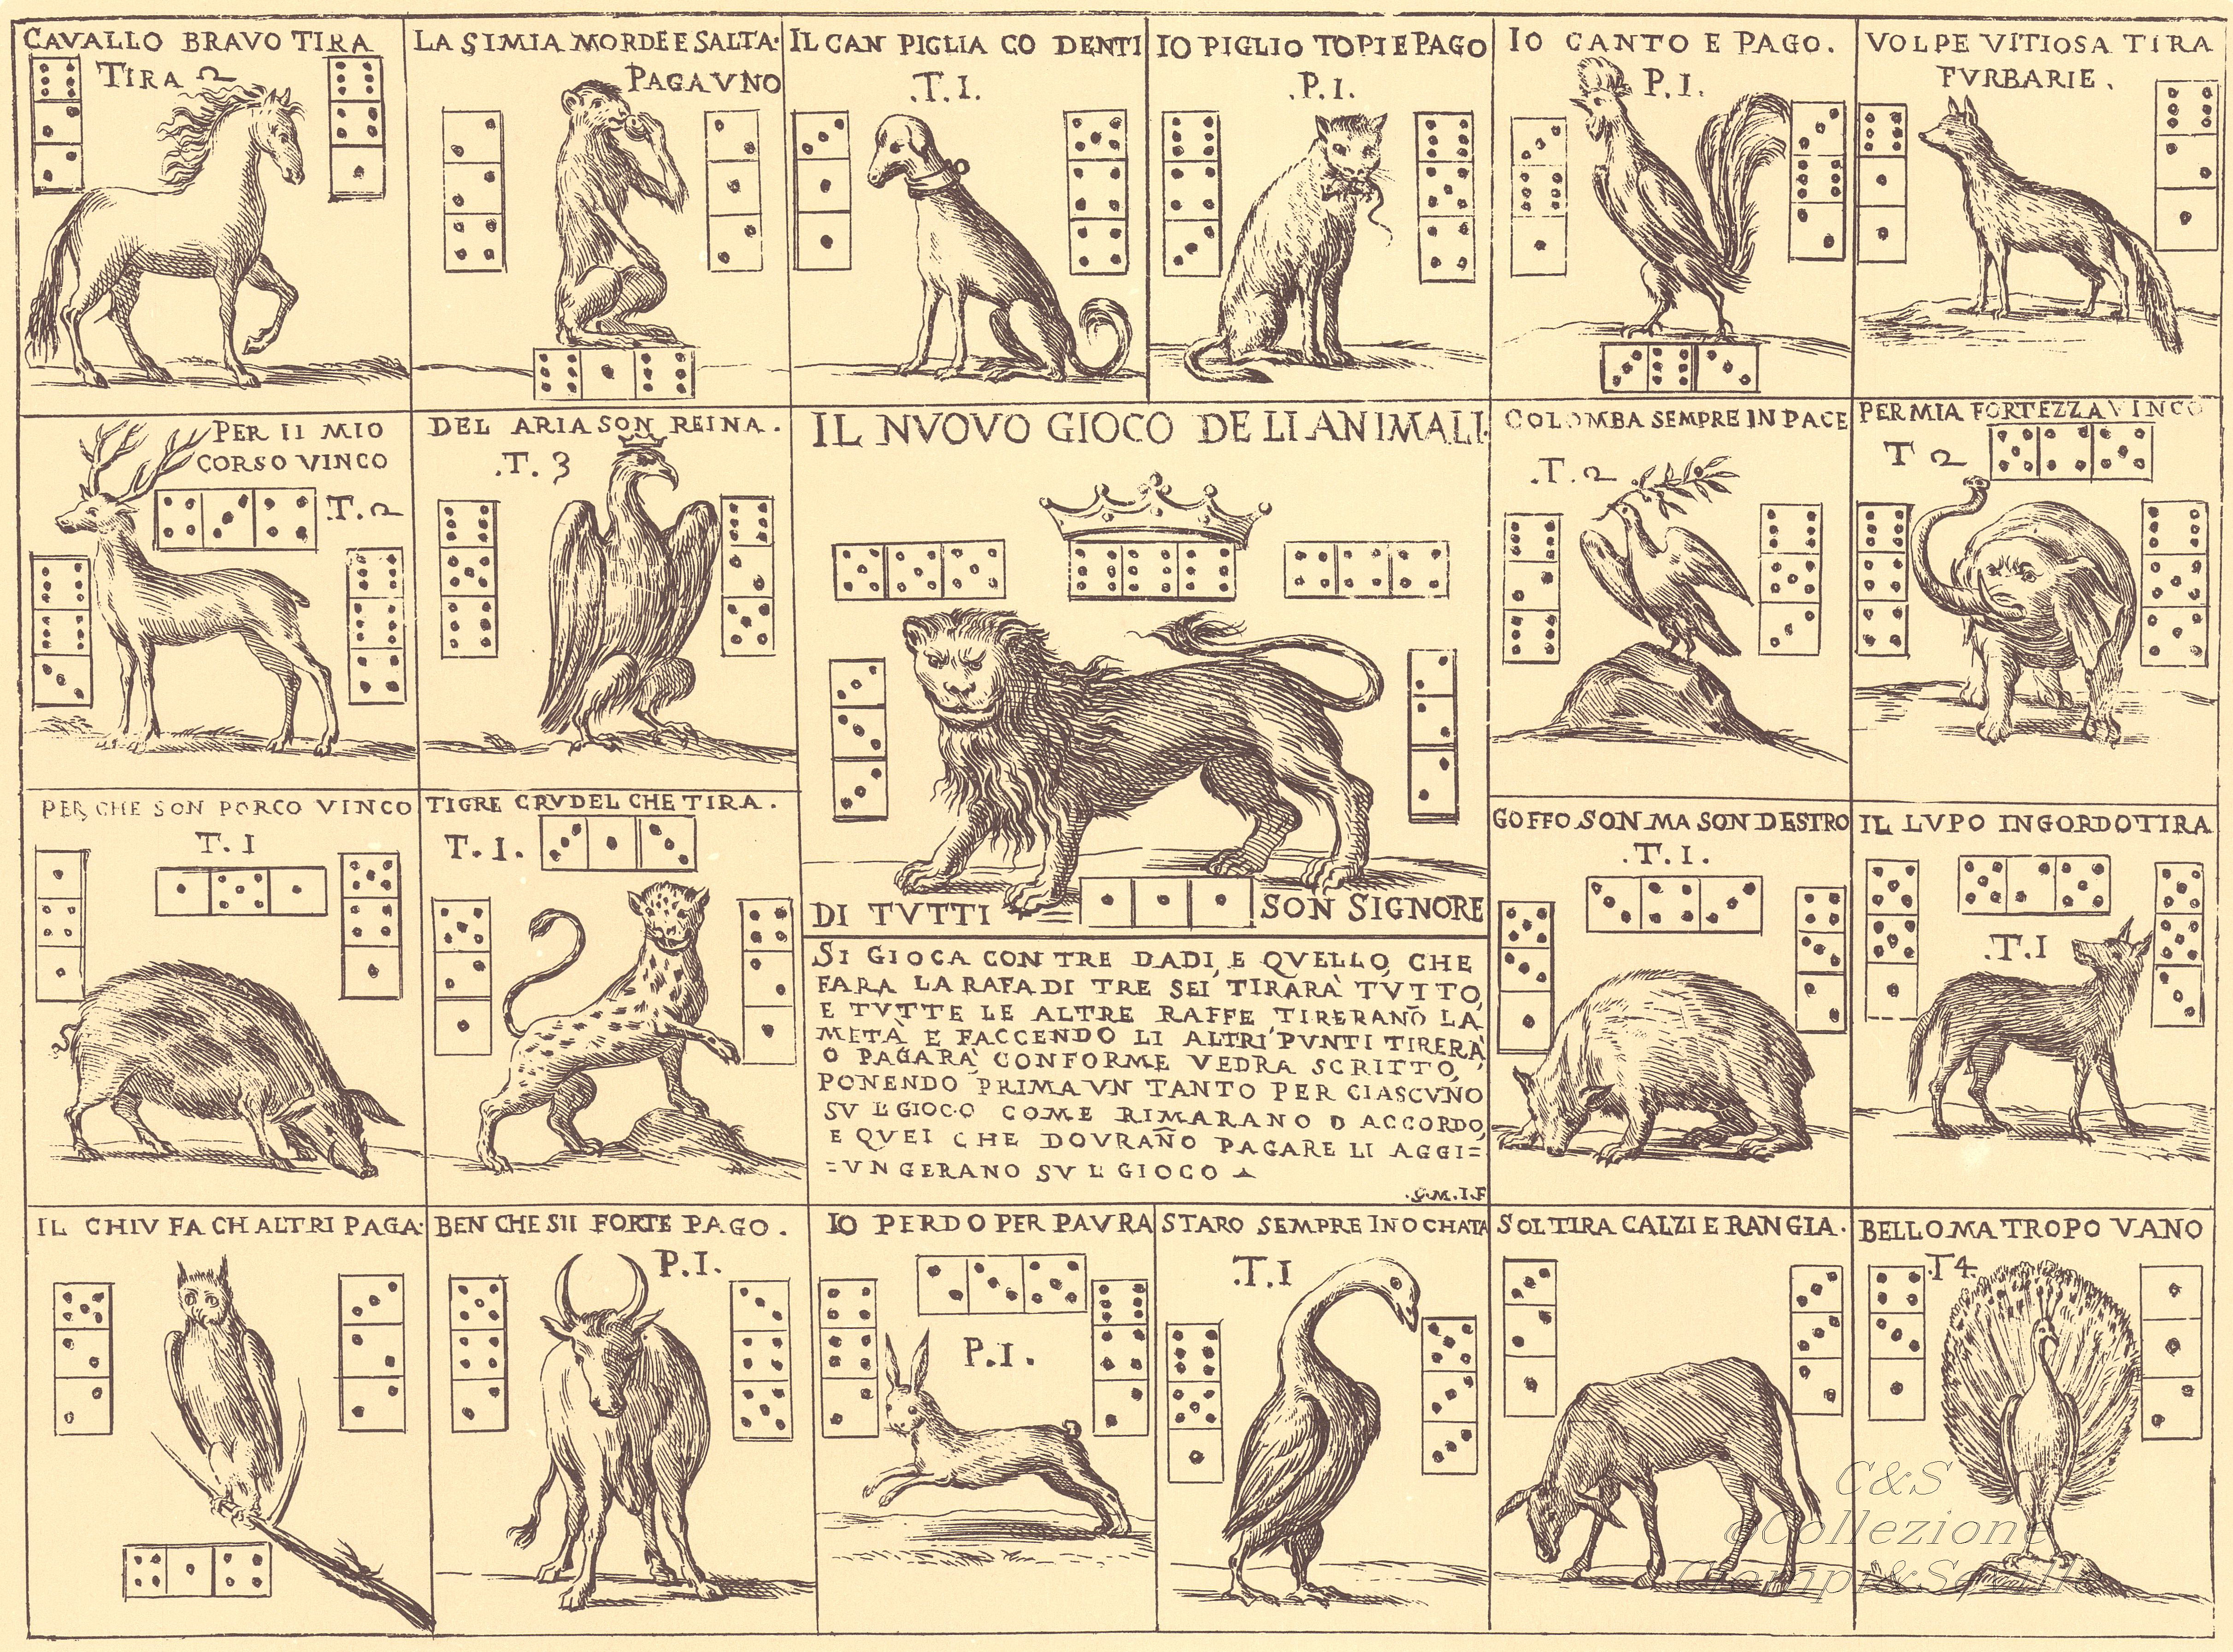 CAVALLO BRAVO TIRA
TIRA 2
LA SIMIA MORDE E SALTA.
PAGA VNO
IL CAN PIGLIA CO DENTI
.T.I.
IO PIGLIO TOPI E PAGO
.P.I.
IO CANTO E PAGO.
P.I.
VOLPE VITIOSA TIRA
FVRBARIE.
PER II MIO
CORSO VINCO
.T.2
DEL ARIA SON REINA.
.T.3
IL NVOVO GIOCO DE LI ANIMALI.
COLOMBA SEMPRE IN PACE
.T.2
PER MIA FORTEZZA VINCO
T 2
PER CHE SON PORCO VINCO
T.I
TIGRE CRVDEL CHE TIRA.
T.I.
DI TVTTI SON SIGNORE
GOFFO SON MA SON DESTRO
.T.I.
IL LVPO INGORDO TIRA
.T.I
SI GIOCA CON TRE DADI, E QVELLO, CHE
FARA LA RAFA DI TRE SEI, TIRARÀ TVTTO,
E TVTTE LE ALTRE RAFFE TIRERANÕ LA
METÀ E FACCENDO LI ALTRI PVNTI TIRERÀ
O PAGARÀ CONFORME VEDRA SCRITTO,
PONENDO PRIMA VN TANTO PER CIASCVNO
SV IL GIOCO COME RIMARANO D ACCORDO,
E QVEI CHE DOVRAÑO PAGARE LI AGGI=
=VNGERANO SV IL GIOCO
.G.M.I.F
IL CHIV FA CH ALTRI PAGA.
BEN CHE SII FORTE PAGO.
P.I.
IO PERDO PER PAVRA
P.I.
STARO SEMPRE IN OCHATA
.T.I
SOL TIRA CALZI E RANGIA.
BELLO MA TROPO VANO
.T4.
C&S
©Collezione
Ciompi&Seville